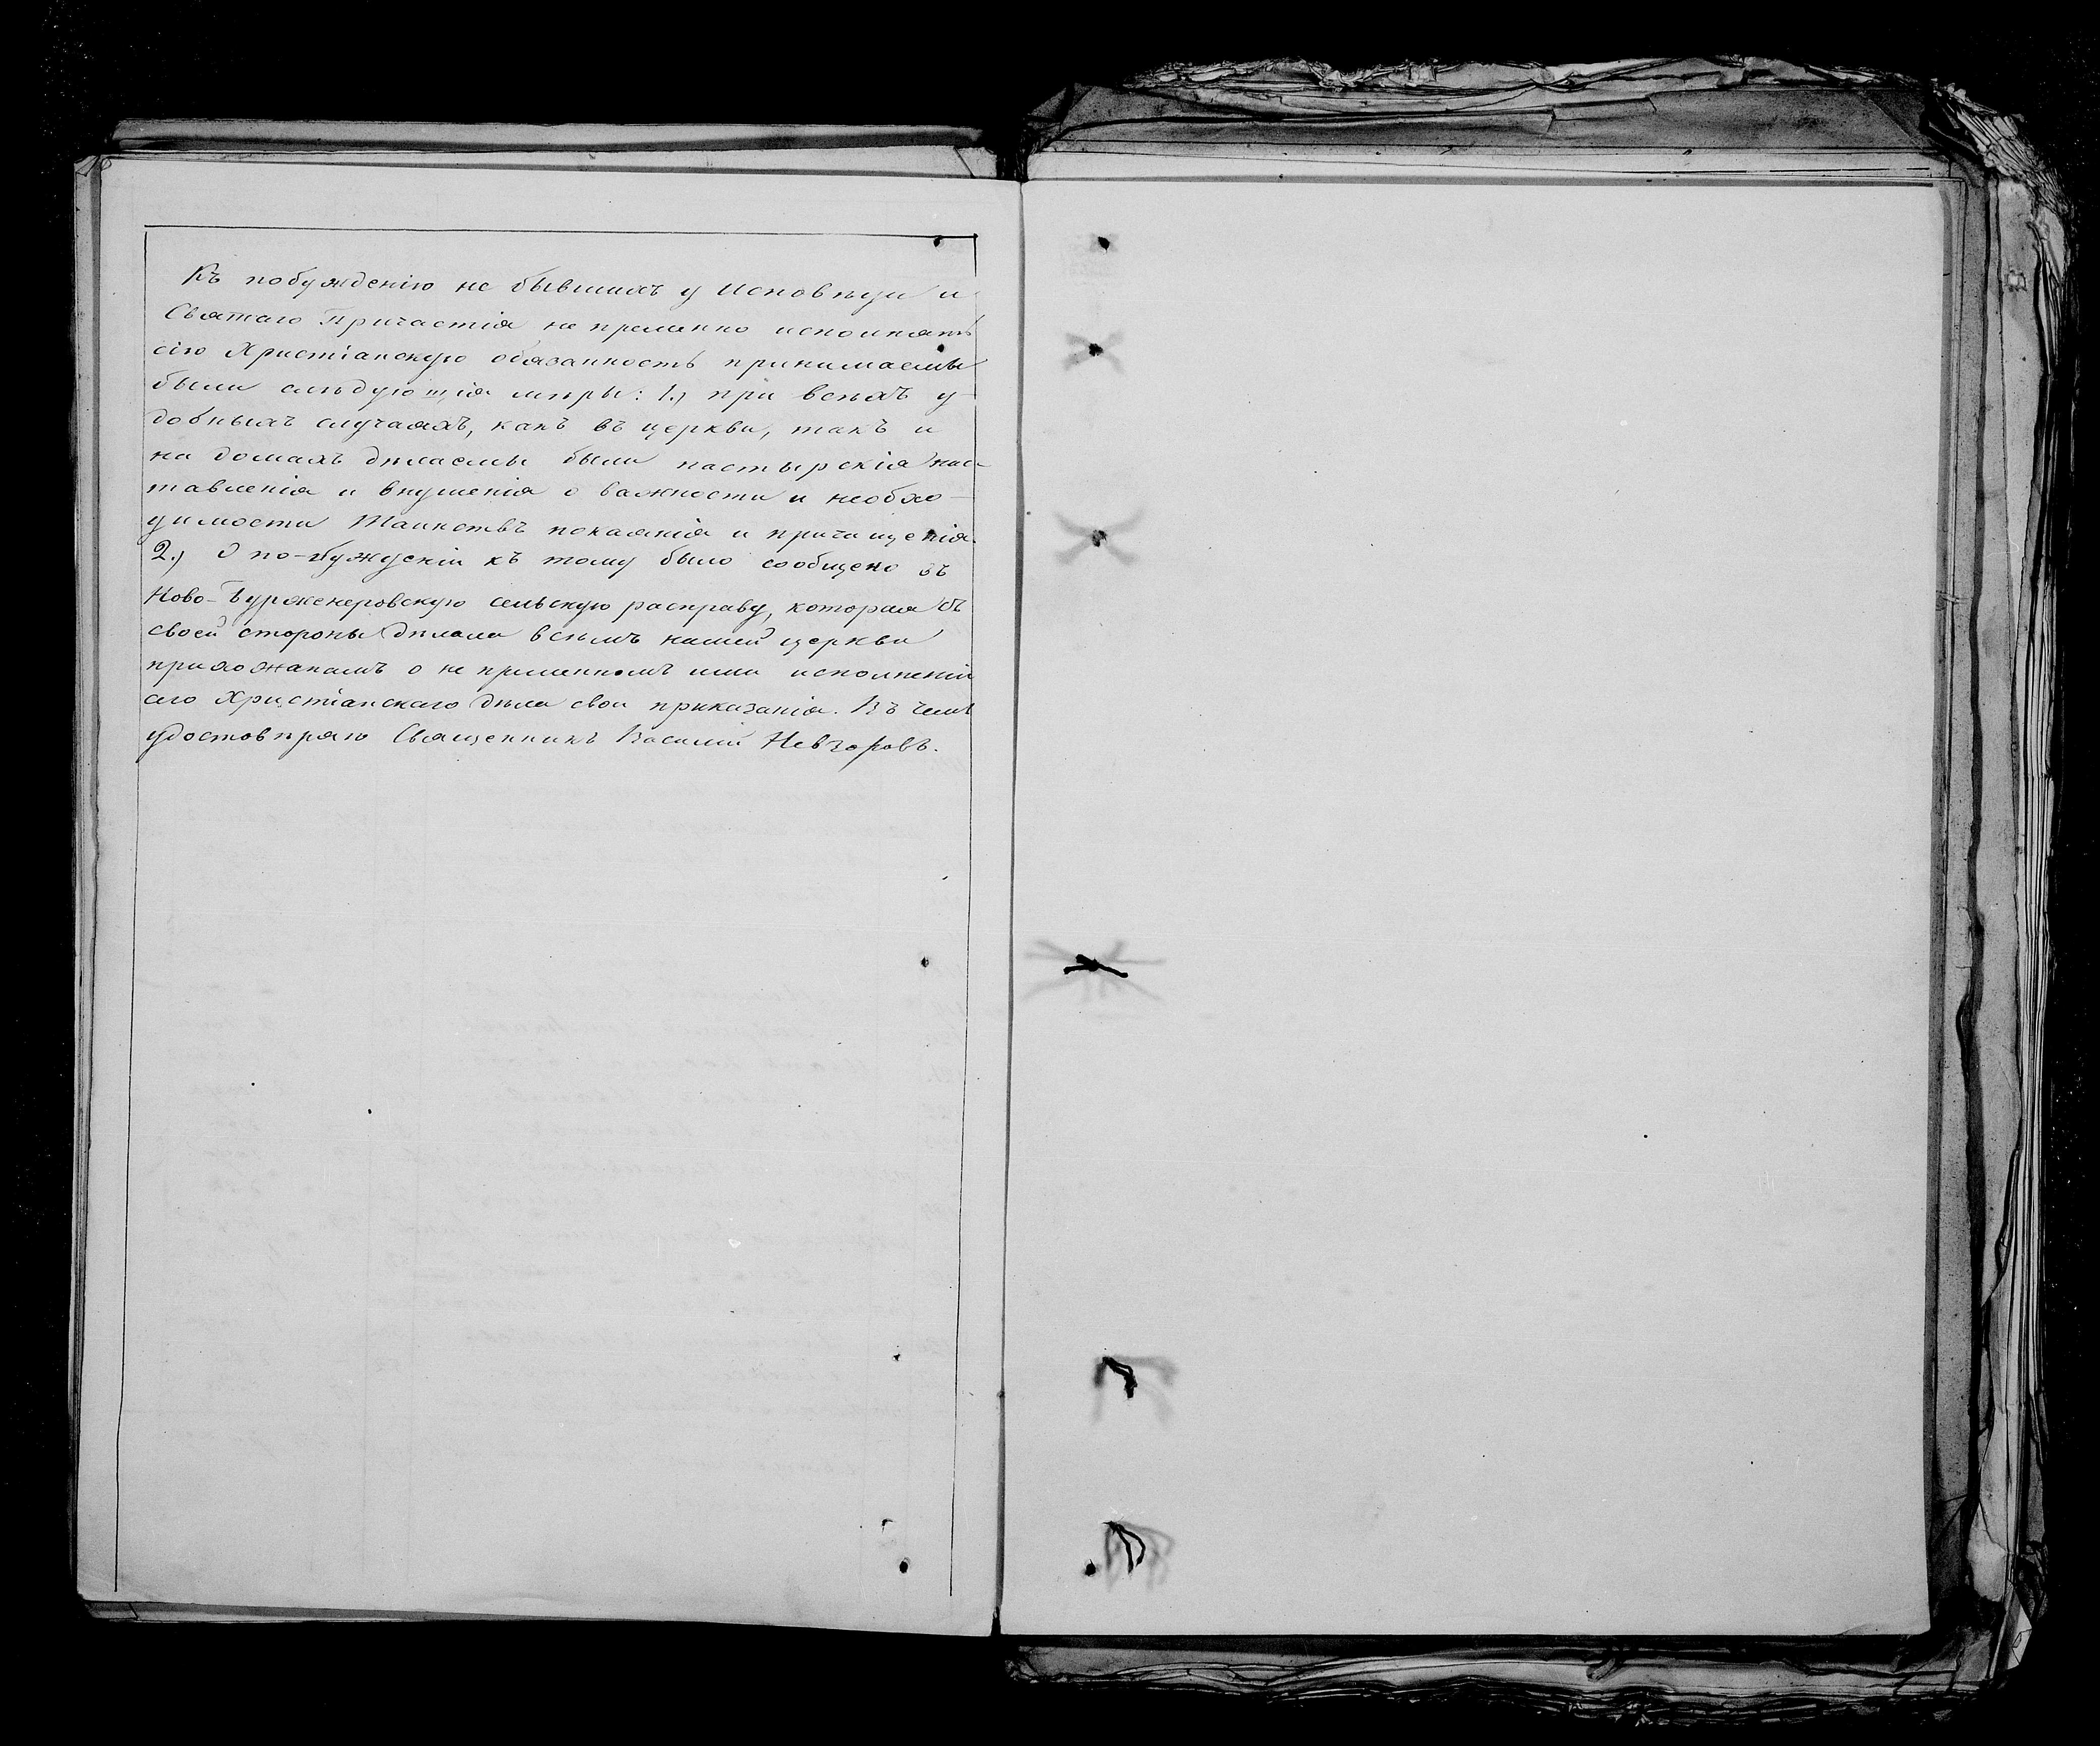 Къ побужденію не бывшихъ у Исповѣди и
Святаго Причастія не премѣнно исполнять
сію Христіанскую обязанность принимаемы
были слѣдующія мѣры: 1.) при всѣхъ у-
добныхъ случаяхъ, какъ въ церкви, такъ и
на домахъ дѣлаемы были пастырскія нас-
тавленія и внушенія о важности и необхо-
димости Таинствъ покаянія и причащенія.
2.) О по-бужденіи къ тому было сообщено въ
сельскую расправу, которая съ
своей стороны дѣлала всѣмъ нашей церкви
прихожанамъ о не премѣнномъ ими исполненіи
сего Христіанскаго дѣла свои приказанія. Въ чемъ
удостовѣряю Священникъ Василій